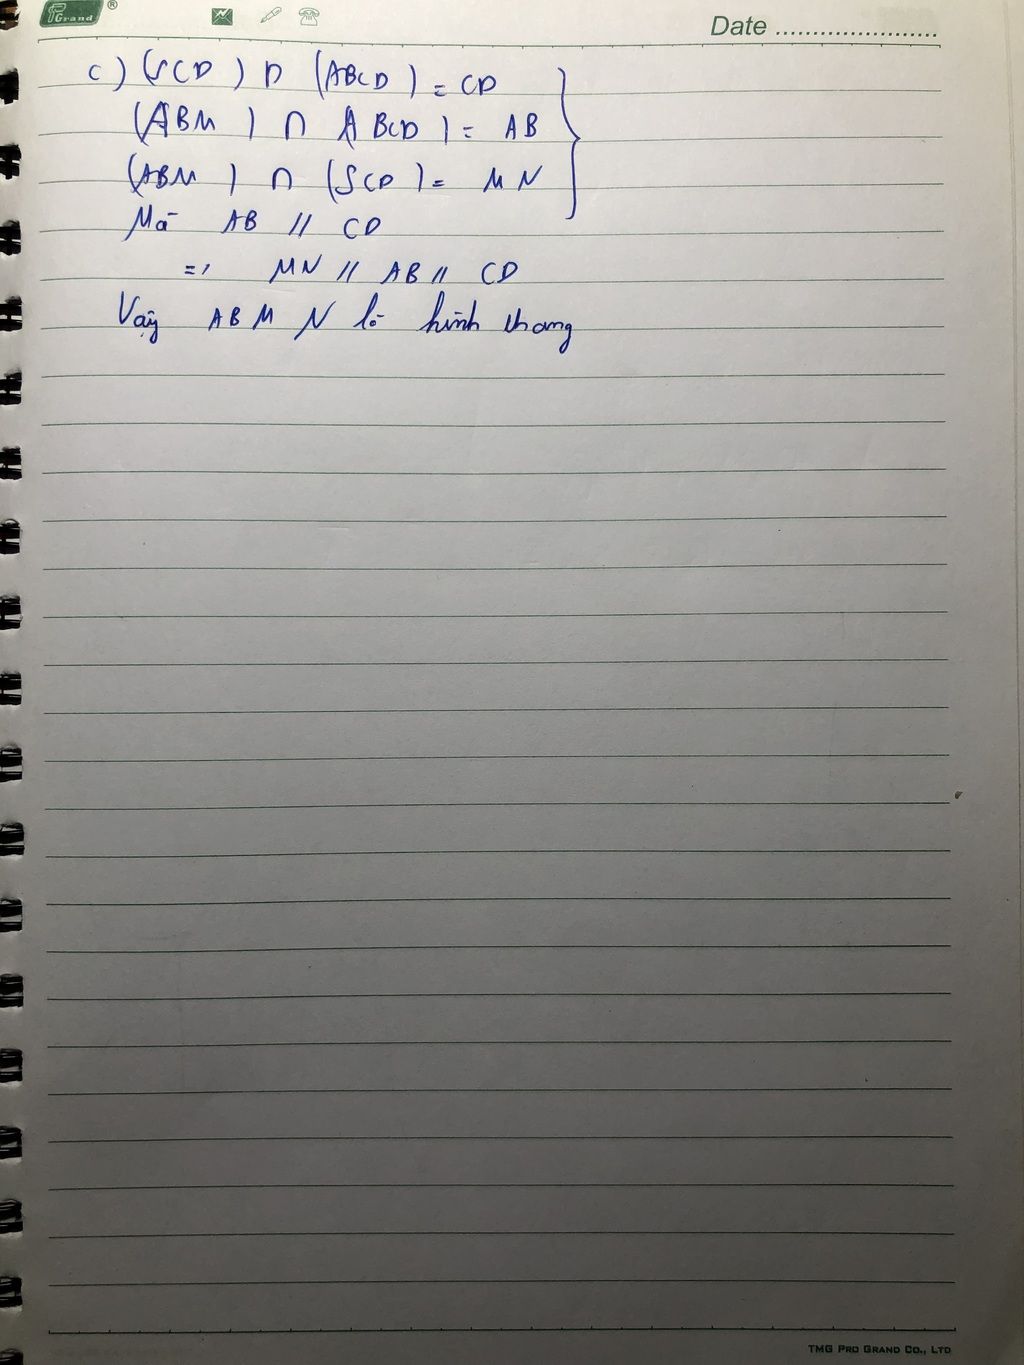 PGrand ®
Date ........................
c) (SCD) ∩ (ABCD) = CD
(ABM) ∩ (ABCD) = AB
(ABM) ∩ (SCD) = MN
Mà AB // CD
=> MN // AB // CD
Vậy ABMN là hình thang
TMG PRO GRAND CO., LTD